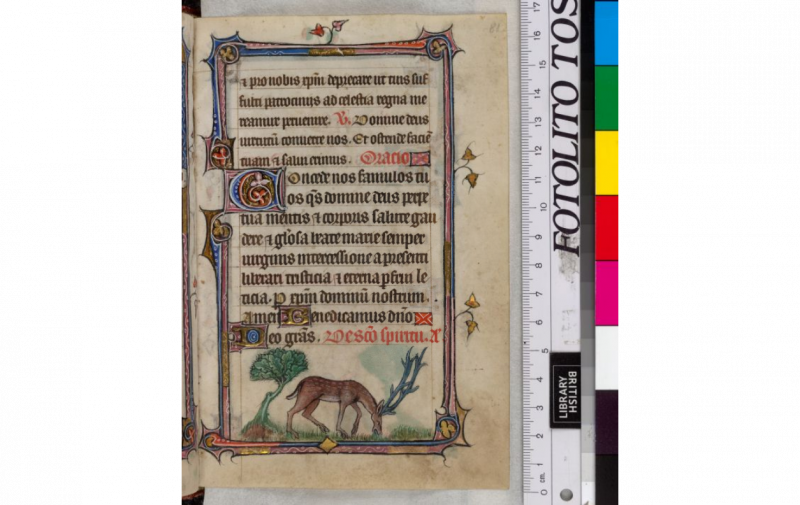 ⁊ pro nobis xp̄m deprecare ut tuis suf
fulti patrocinijs ad celestia regna me
reamur peruenire. V. Domine deus
uirtutū conuerte nos. Et ostende faciē
tuam ⁊ salui erimus. Oratio
Concede nos famulos tu
os q̄s domine deus perpe
tua mentis ⁊ corporis salute gau
dere ⁊ gl̄osa beate marie semper
uirginis intercessione a presenti
liberari tristicia ⁊ eterna p̄frui le
ticia. P xp̄m dominū nostrum.
Amen Benedicamus dn̄o
Deo grās. De sc̄o spiritu. A
FOTOLITO TOS
17
16
15
14
13
12
11
10
9
8
7
6
5
4
3
2
1
0 cm.
BRITISH
LIBRARY